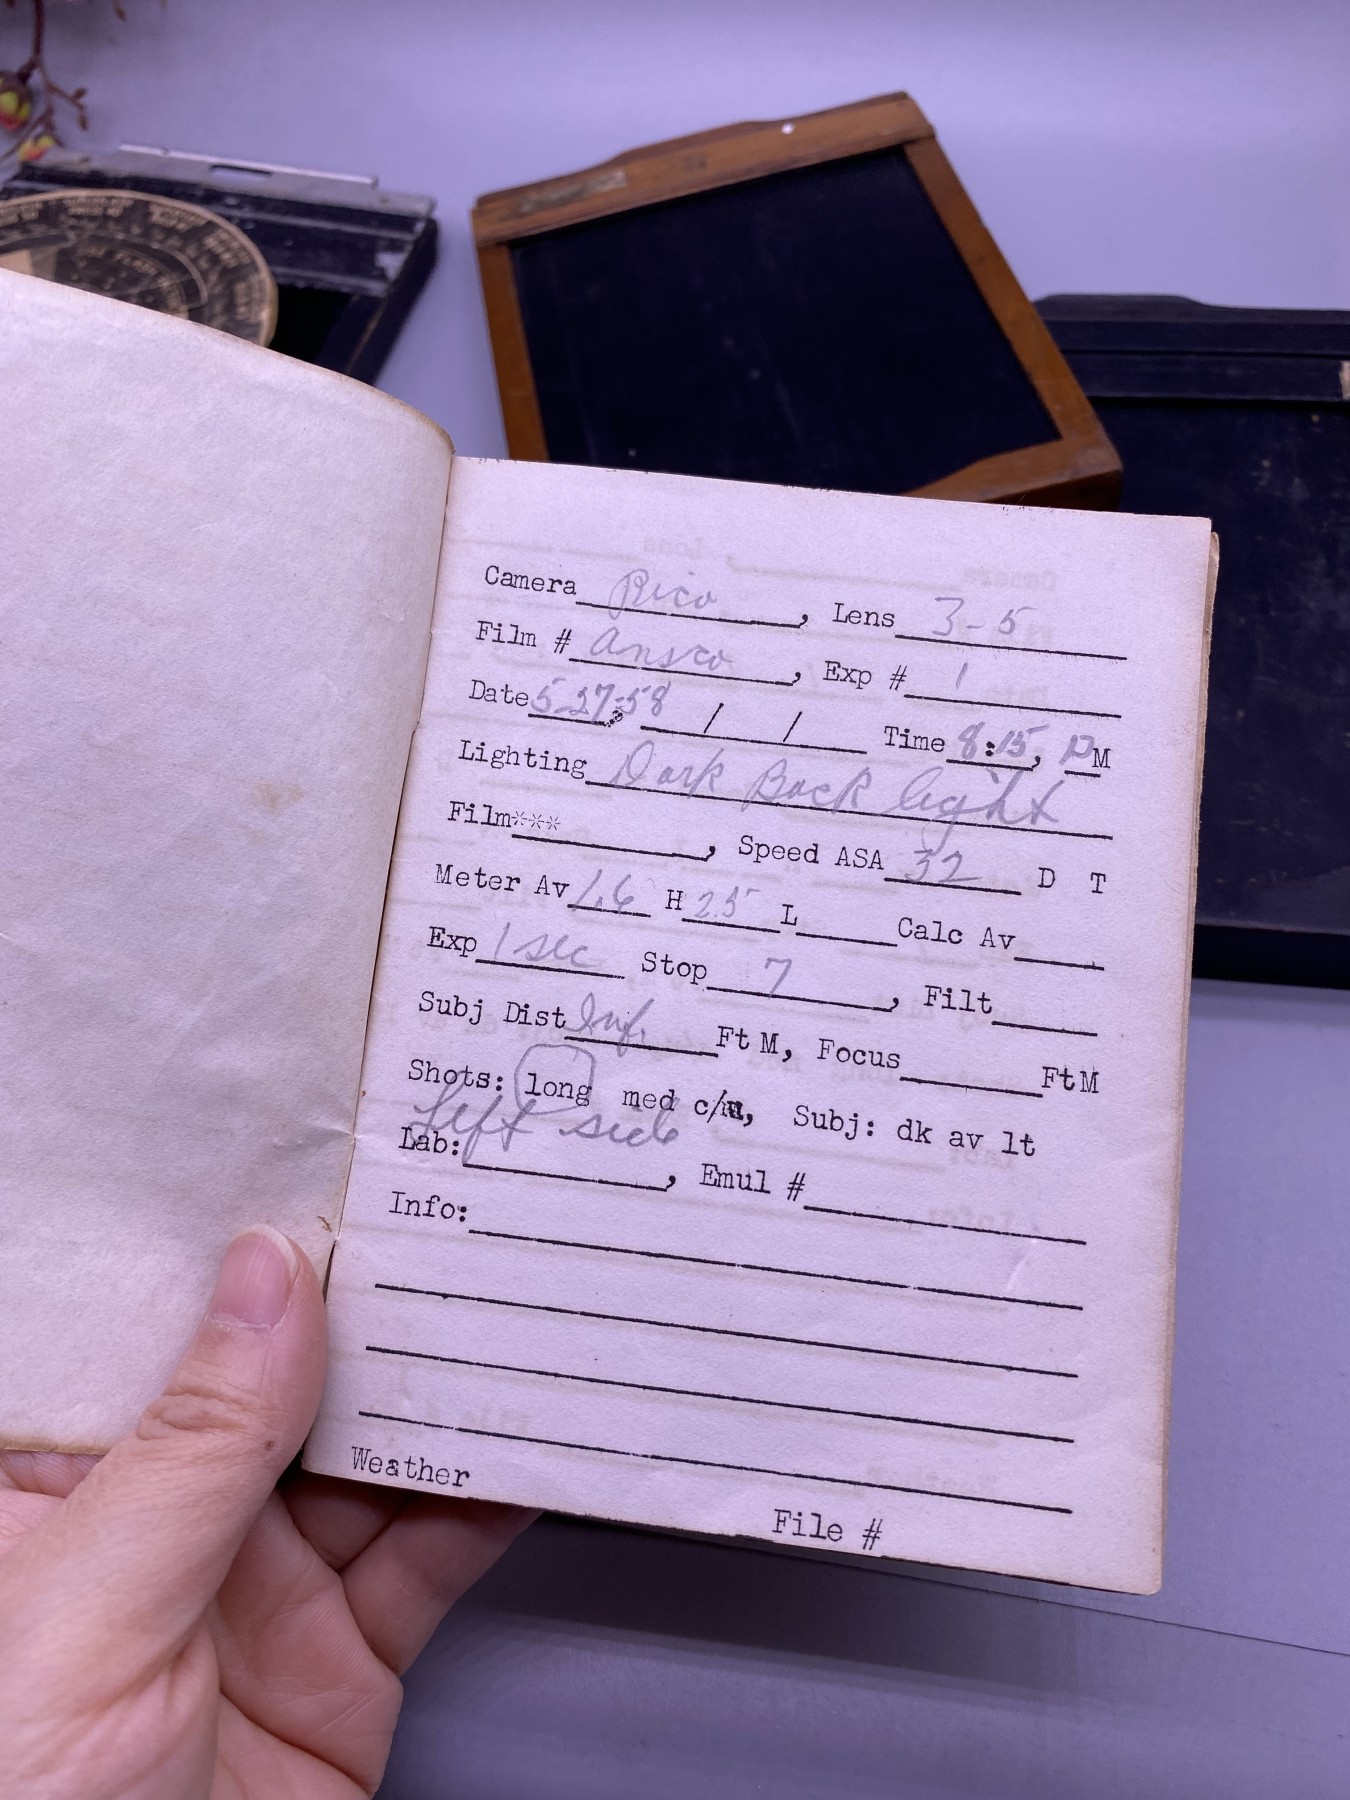 Camera Rico, Lens 3-5
Film # Ansco, Exp # 1
Date 5-27-58 / / Time 8:15, PM
Lighting Dark Back light
Film***, Speed ASA 32 D T
Meter Av 1.6 H 2.5 L Calc Av
Exp 1 sec Stop 7, Filt
Subj Dist Inf. Ft M, Focus Ft M
Shots: long med c/u, Subj: dk av lt
Left side
Lab:, Emul #
Info:
Weather
File #